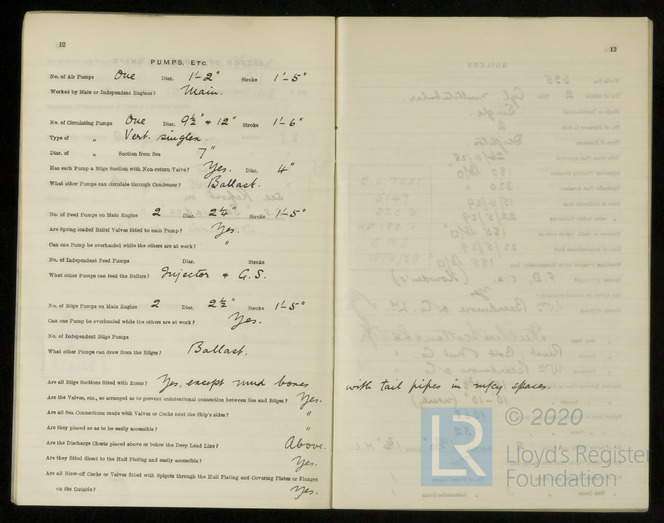 12
PUMPS, ETC.
No. of Air Pumps One Diar. 1'-2" Stroke 1'-5"
Worked by Main or Independent Engines? Main.
No. of Circulating Pumps One Diar. 9½" & 12" Stroke 1'-6"
Type of " Vert. simplex
Diar. of " Suction from Sea 7"
Has each Pump a Bilge Suction with Non-return Valve? Yes. Diar. 4"
What other Pumps can circulate through Condenser? Ballast.
No. of Feed Pumps on Main Engine 2 Diar. 2¼" Stroke 1'-5"
Are Spring-loaded Relief Valves fitted to each Pump? Yes.
Can one Pump be overhauled while the others are at work? "
No. of Independent Feed Pumps Diar. Stroke
What other Pumps can feed the Boilers? Injector & G.S.
No. of Bilge Pumps on Main Engine 2 Diar. 2½" Stroke 1'-5"
Can one Pump be overhauled while the others are at work? Yes.
No. of Independent Bilge Pumps
What other Pumps can draw from the Bilges? Ballast.
Are all Bilge Suctions fitted with Roses? Yes, except mud boxes with tail pipes in mcy spaces.
Are the Valves, etc., so arranged as to prevent unintentional connection between Sea and Bilges? Yes.
Are all Sea Connections made with Valves or Cocks next the Ship's sides? "
Are they placed so as to be easily accessible? "
Are the Discharge Chests placed above or below the Deep Load Line? Above.
Are they fitted direct to the Hull Plating and easily accessible? Yes.
Are all Blow-off Cocks or Valves fitted with Spigots through the Hull Plating and Covering Plates or Flanges
on the Outside? Yes.
13
LR
© 2020
Lloyd's Register
Foundation